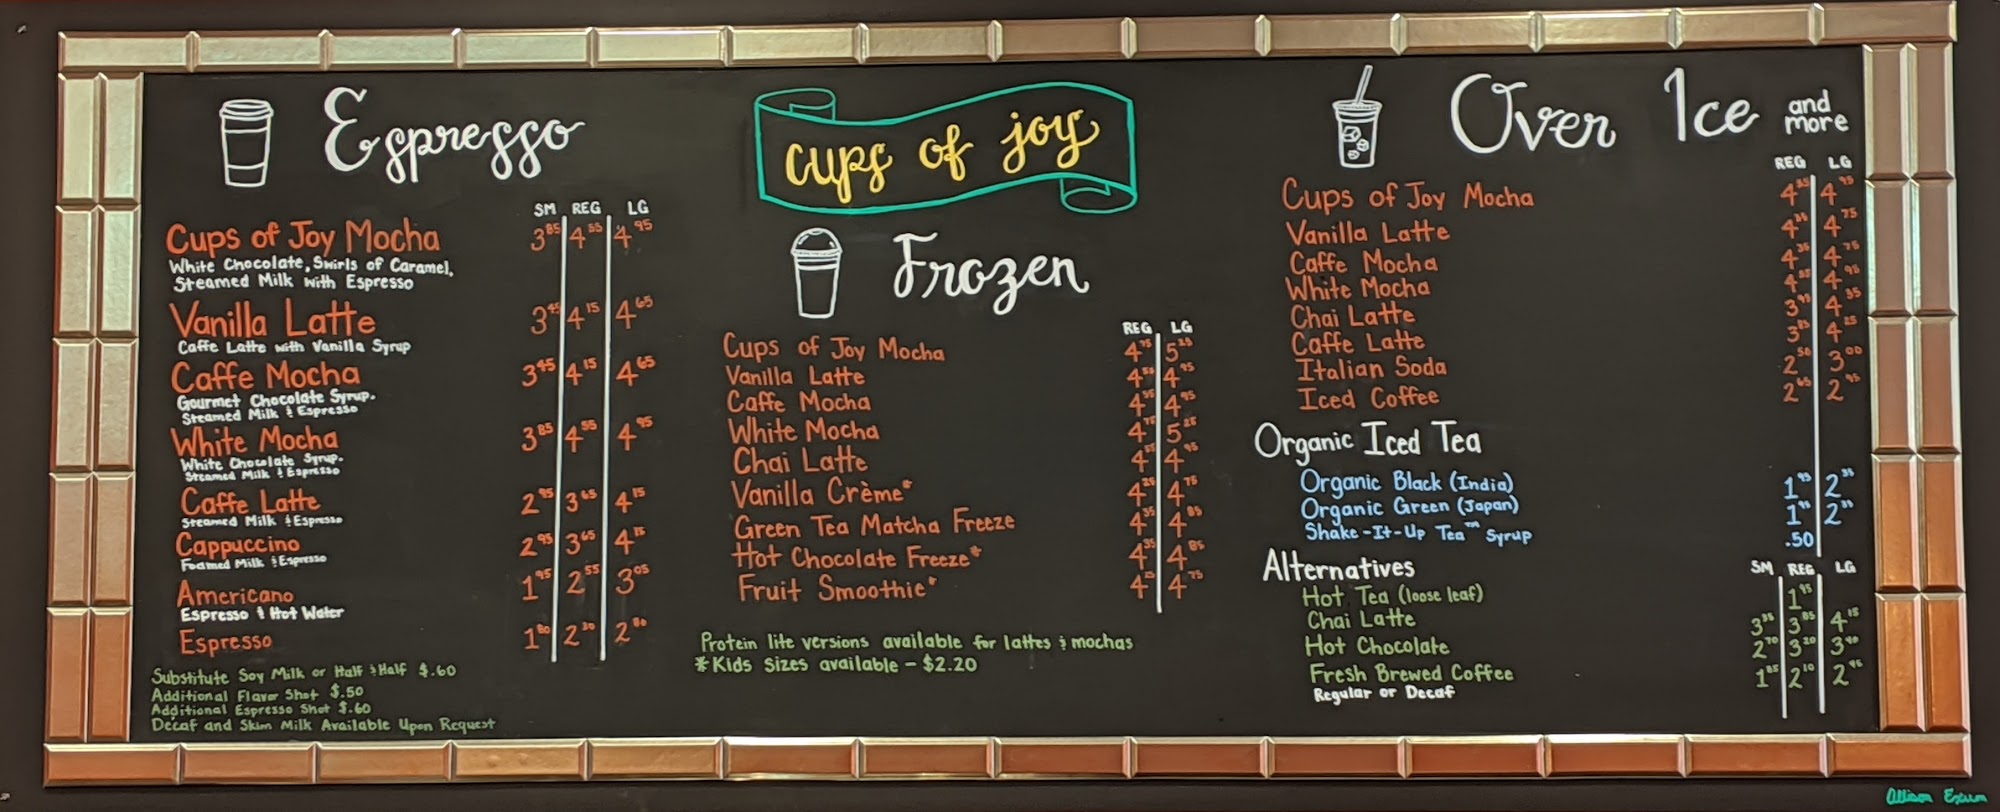 Espresso
SM REG LG
Cups of Joy Mocha 3.85 4.55 4.95
White Chocolate, Swirls of Caramel,
Steamed Milk with Espresso
Vanilla Latte 3.45 4.15 4.65
Caffe Latte with Vanilla Syrup
Caffe Mocha 3.45 4.15 4.65
Gourmet Chocolate Syrup.
Steamed Milk & Espresso
White Mocha 3.85 4.55 4.95
White Chocolate Syrup.
Steamed Milk & Espresso
Caffe Latte 2.95 3.65 4.15
Steamed Milk & Espresso
Cappuccino 2.95 3.65 4.15
Foamed Milk & Espresso
Americano 1.95 2.55 3.05
Espresso & Hot Water
Espresso 1.80 2.30 2.80
Substitute Soy Milk or Half & Half $.60
Additional Flavor Shot $.50
Additional Espresso Shot $.60
Decaf and Skim Milk Available Upon Request
cups of joy
Frozen
REG LG
Cups of Joy Mocha 4.75 5.25
Vanilla Latte 4.95
Caffe Mocha 4.95
White Mocha 4.75 5.25
Chai Latte 4.95
Vanilla Crème* 4.25 4.75
Green Tea Matcha Freeze 4.35 4.85
Hot Chocolate Freeze* 4.35 4.85
Fruit Smoothie* 4.25 4.75
Protein lite versions available for lattes & mochas
*Kids Sizes available - $2.20
Over Ice and
more
REG LG
Cups of Joy Mocha 4.95
Vanilla Latte 4.75
Caffe Mocha 4.35 4.75
White Mocha 4.95
Chai Latte 3.95 4.35
Caffe Latte 3.85 4.25
Italian Soda 2.50 3.00
Iced Coffee 2.65 2.95
Organic Iced Tea
Organic Black (India) 1.95 2.35
Organic Green (Japan) 1.95 2.35
Shake-It-Up Tea™ Syrup .50
Alternatives
SM REG LG
Hot Tea (loose leaf) 1.95
Chai Latte 3.35 3.85 4.15
Hot Chocolate 2.70 3.20 3.40
Fresh Brewed Coffee 1.85 2.10
Regular or Decaf
Allison Exum